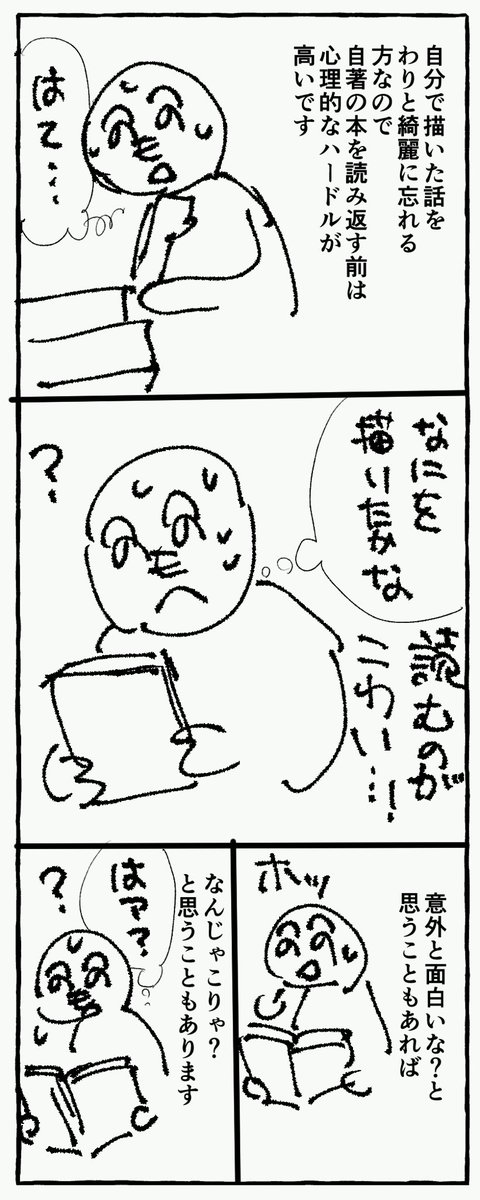 自分で描いた話を
わりと綺麗に忘れる
方なので
自著の本を読み返す前は
心理的なハードルが
高いです
はて…
なにを
描いたかな
読むのが
こわい…!
?
意外と面白いな?と
思うこともあれば
ホッ
なんじゃこりゃ?
と思うこともあります
はァ?
?